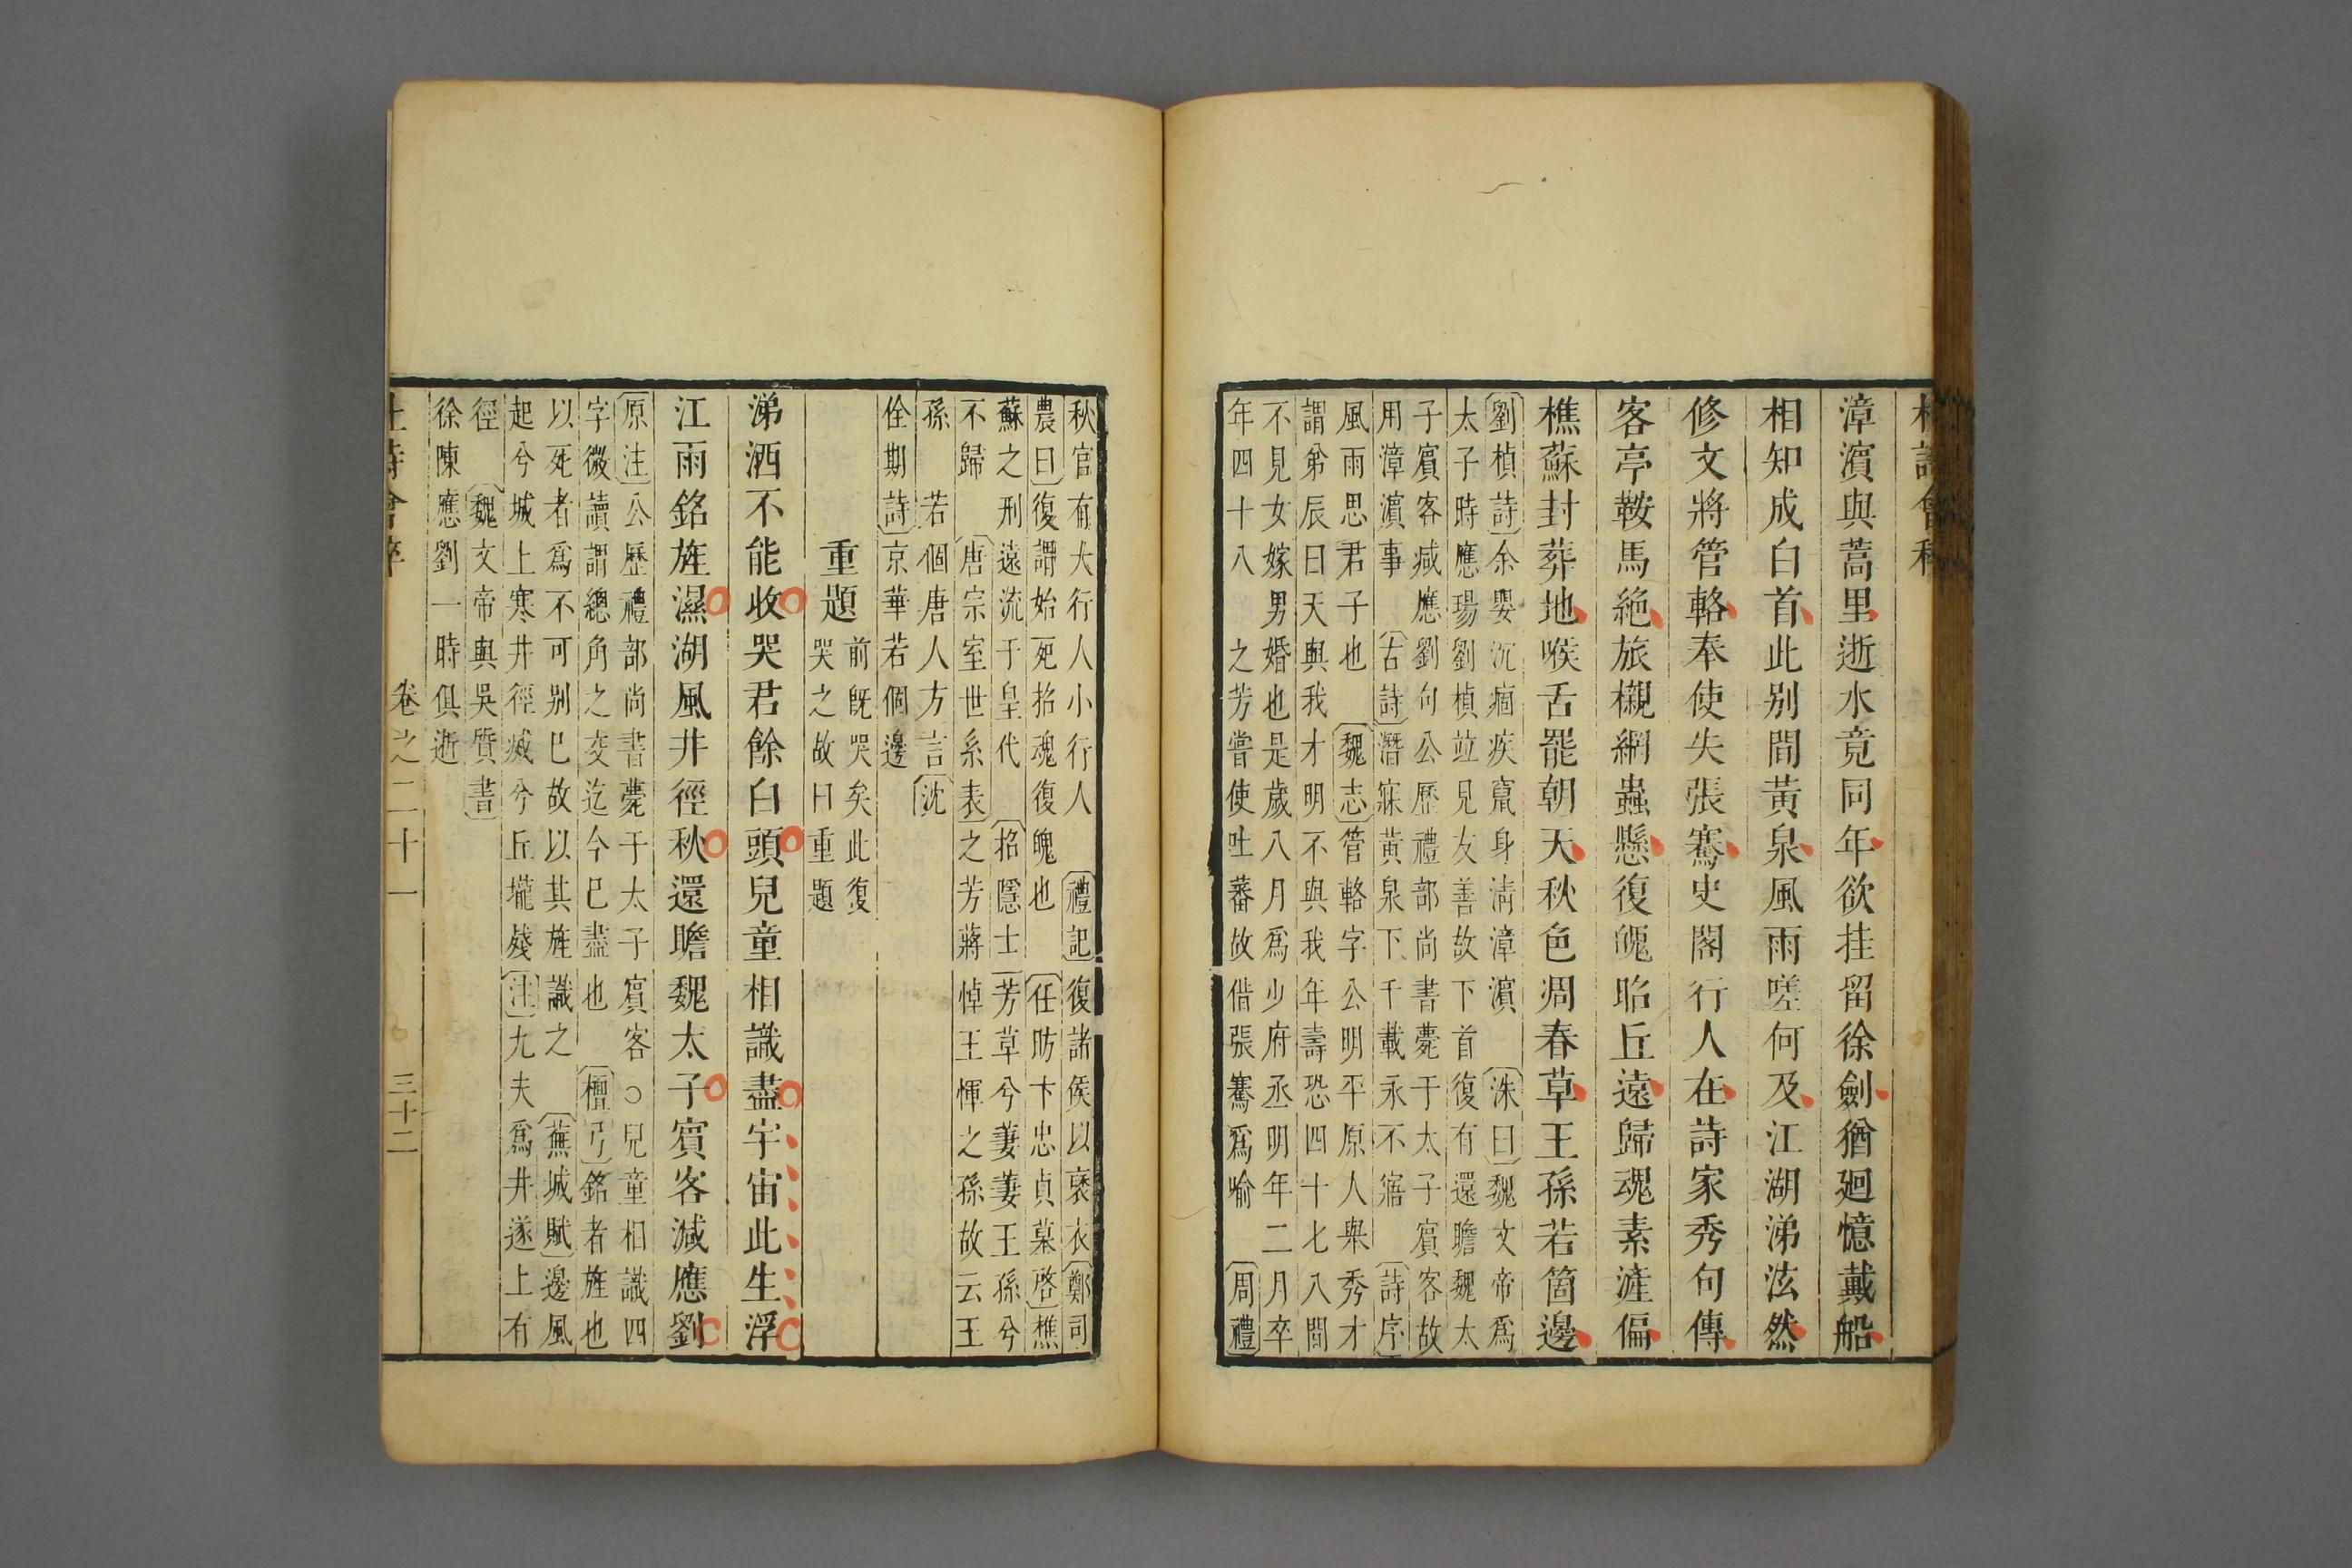 杜詩會稡
漳濵與蒿里逝水竟同年欲挂留徐劍猶廻憶戴船
相知成白首此別間黃泉風雨嗟何及江湖涕泫然
修文將管輅奉使失張騫史閣行人在詩家秀句傳
客亭鞍馬絕旅櫬網蟲懸復魄昭丘遠歸魂素滻偏
樵蘇封葬地喉舌罷朝天秋色凋春草王孫若箇邊
劉楨詩余嬰沉痼疾竄身淸漳濵 洙曰魏文帝爲
太子時應瑒劉楨竝見友善故下首復有還瞻魏太
子賓客減應劉句公歷禮部尚書薨于太子賓客故
用漳濵事 古詩潛寐黃泉下千載永不寤 詩序
風雨思君子也 魏志管輅字公明平原人舉秀才
謂弟辰曰天與我才明不與我年壽恐四十七八間
不見女嫁男婚也是歲八月爲少府丞明年二月卒
年四十八 之芳嘗使吐蕃故借張騫爲喻 周禮
秋官有大行人小行人 禮記復諸侯以襃衣鄭司
農曰復謂始死招魂復魄也 任昉卞忠貞墓啓樵
蘇之刑遠流于皇代 招隱士芳草兮萋萋王孫兮
不歸 唐宗室世系表之芳蔣悼王惲之孫故云王
孫 若個唐人方言沈
佺期詩京華若個邊
重題
前旣哭矣此復
哭之故曰重題
涕洒不能收哭君餘白頭兒童相識盡宇宙此生浮
江雨銘旌濕湖風井徑秋還瞻魏太子賓客減應劉
原注公歷禮部尚書薨于太子賓客○兒童相識四
字微讀謂總角之交迄今已盡也 檀弓銘者旌也
以死者爲不可別已故以其旌識之 蕪城賦邊風
起兮城上寒井徑滅兮丘壠殘注九夫爲井遂上有
徑 魏文帝與吳質書
徐陳應劉一時俱逝
杜詩會稡 卷之二十一 三十二